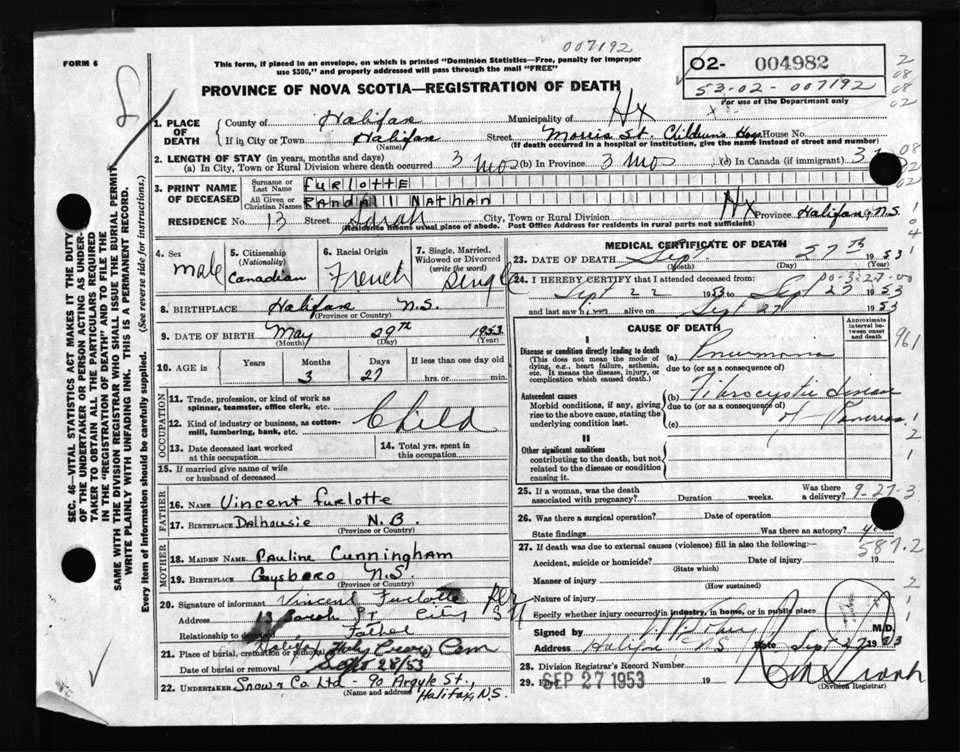 FORM 6
007192
This form, if placed in an envelope, on which is printed "Dominion Statistics—Free, penalty for improper
use $300," and properly addressed will pass through the mail "FREE"
O2- 004982
53-02-007192
For use of the Department only
2
08
08
02
PROVINCE OF NOVA SCOTIA—REGISTRATION OF DEATH
1. PLACE OF DEATH
County of Halifax Municipality of Hx
If in City or Town Halifax Street Morris St. Children's Hosp House No.
(Name) (If death occurred in a hospital or institution, give the name instead of street and number)
2. LENGTH OF STAY (in years, months and days)
(a) In City, Town or Rural Division where death occurred 3 mos (b) In Province 3 mos (c) In Canada (if immigrant) 3
3. PRINT NAME OF DECEASED
Surname or Last Name FURLOTTE
All Given or Christian Names RANDALL NATHAN
RESIDENCE No. 13 Street Sarah City, Town or Rural Division Hx Province Halifax N.S.
(Residence means usual place of abode. Post Office Address for residents in rural parts not sufficient)
4. Sex male
5. Citizenship (Nationality) Canadian
6. Racial Origin French
7. Single, Married, Widowed or Divorced (write the word) Single
8. BIRTHPLACE Halifax N.S.
(Province or Country)
9. DATE OF BIRTH May 29th 1953
(Month) (Day) (Year)
10. AGE in Years Months 3 Days 27 If less than one day old hrs. or min.
OCCUPATION
11. Trade, profession, or kind of work as spinner, teamster, office clerk, etc.
Child
12. Kind of industry or business, as cotton-mill, lumbering, bank, etc.
13. Date deceased last worked at this occupation
14. Total yrs. spent in this occupation
15. If married give name of wife or husband of deceased
FATHER
16. NAME Vincent Furlotte
17. BIRTHPLACE Dalhousie N.B.
(Province or Country)
MOTHER
18. MAIDEN NAME Pauline Cunningham
19. BIRTHPLACE Guysboro N.S.
(Province or Country)
20. Signature of informant Vincent Furlotte
Address 13 Sarah St City
Relationship to deceased Father
21. Place of burial, cremation or removal Halifax Holy Cross Cem
Date of burial or removal Sept 28/53
22. UNDERTAKER Snow & Co. Ltd - 90 Argyle St.,
(Name and address) Halifax, N.S.
MEDICAL CERTIFICATE OF DEATH
23. DATE OF DEATH Sept. 27th 1953
(Month) (Day) (Year)
24. I HEREBY CERTIFY that I attended deceased from
Sept 22 1953 to Sept 27 1953
and last saw him alive on Sept 27 1953
CAUSE OF DEATH
Approximate interval between onset and death
I
Disease or condition directly leading to death
(This does not mean the mode of dying, e.g., heart failure, asthenia, etc. It means the disease, injury, or complication which caused death.)
(a) Pneumonia
due to (or as a consequence of)
Antecedent causes
Morbid conditions, if any, giving rise to the above cause, stating the underlying condition last.
(b) Fibrocystic disease
due to (or as a consequence of)
(c) of Pancreas
II
Other significant conditions
contributing to the death, but not related to the disease or condition causing it.
25. If a woman, was the death associated with pregnancy? Duration weeks. Was there a delivery? 9-27-3
26. Was there a surgical operation? Date of operation
State findings Was there an autopsy?
587.2
27. If death was due to external causes (violence) fill in also the following:—
Accident, suicide or homicide? Date of injury 19
(State which)
Manner of injury
(How sustained)
Nature of injury
Specify whether injury occurred in industry, in home, or in public place
Signed by M.D.
Address Halifax N S Date Sept 27 1953
28. Division Registrar's Record Number
29. Filed SEP 27 1953 19
(Division Registrar)
SEC. 46—VITAL STATISTICS ACT MAKES IT THE DUTY
OF THE UNDERTAKER OR PERSON ACTING AS UNDER-
TAKER TO OBTAIN ALL THE PARTICULARS REQUIRED
IN THE "REGISTRATION OF DEATH" AND TO FILE THE
SAME WITH THE DIVISION REGISTRAR WHO SHALL ISSUE THE BURIAL PERMIT
WRITE PLAINLY WITH UNFADING INK. THIS IS A PERMANENT RECORD.
Every item of Information should be carefully supplied. (See reverse side for instructions.)